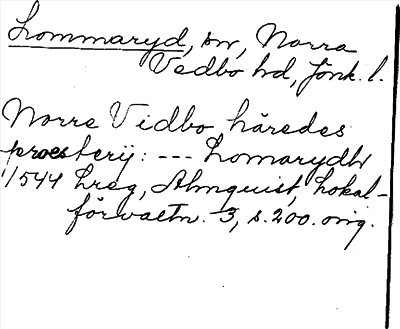 Lommaryd, sn, Norra
Vedbo hd, Jönk. l.
Norre Vidbo häredes
proesterij: --- Lomarydh
1/1544 Lreg, Almquist, Lokal-
förvaltn. 3, s. 200. orig.